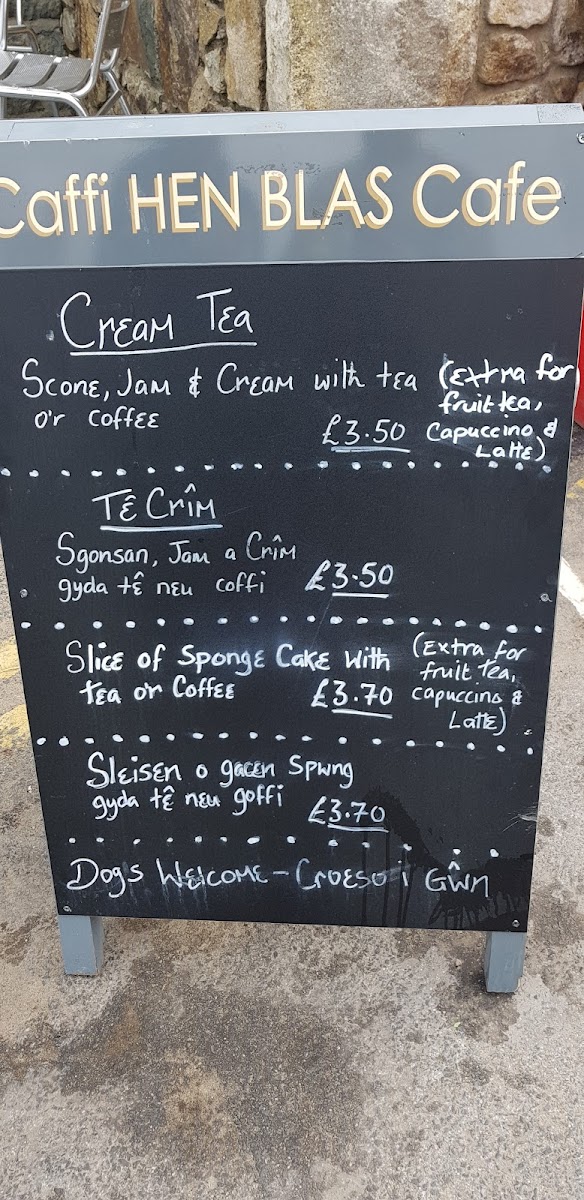 Caffi HEN BLAS Cafe
Cream Tea
Scone, Jam & Cream with tea
o'r coffee
£3.50
(Extra for
fruit tea,
Capuccino &
Latte)
Tê Crîm
Sgonsan, Jam a Crîm
gyda tê neu coffi
£3.50
Slice of Sponge Cake with
tea or Coffee
£3.70
(Extra for
fruit tea,
capuccino &
Latte)
Sleisen o gacen Spwng
gyda tê neu goffi
£3.70
Dogs Welcome - Croeso i Gŵn